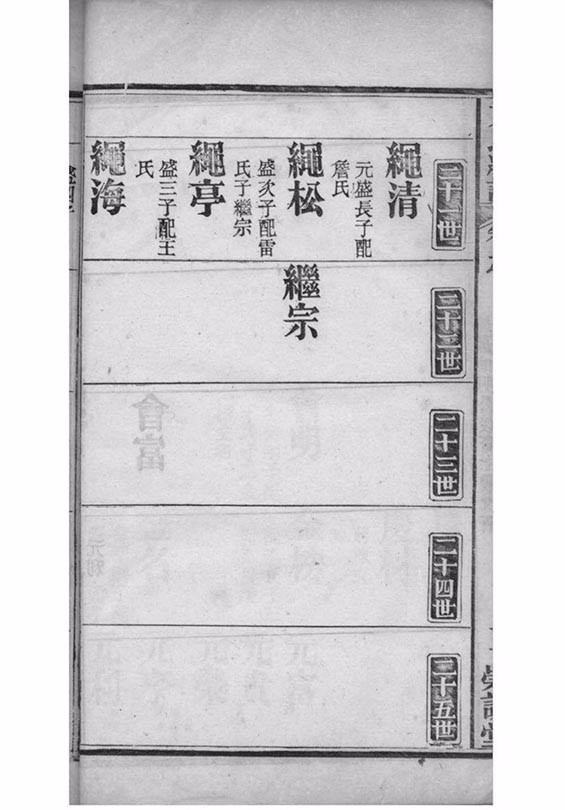 二十一世
繩清
元盛長子配
詹氏
繩松
盛次子配雷
氏子繼宗
繩亭
盛三子配王
氏
繩海
二十二世
繼宗
二十三世
二十四世
二十五世